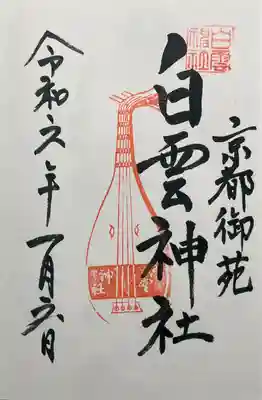 京都御苑
白雲神社
白雲神社
令和六年一月六日